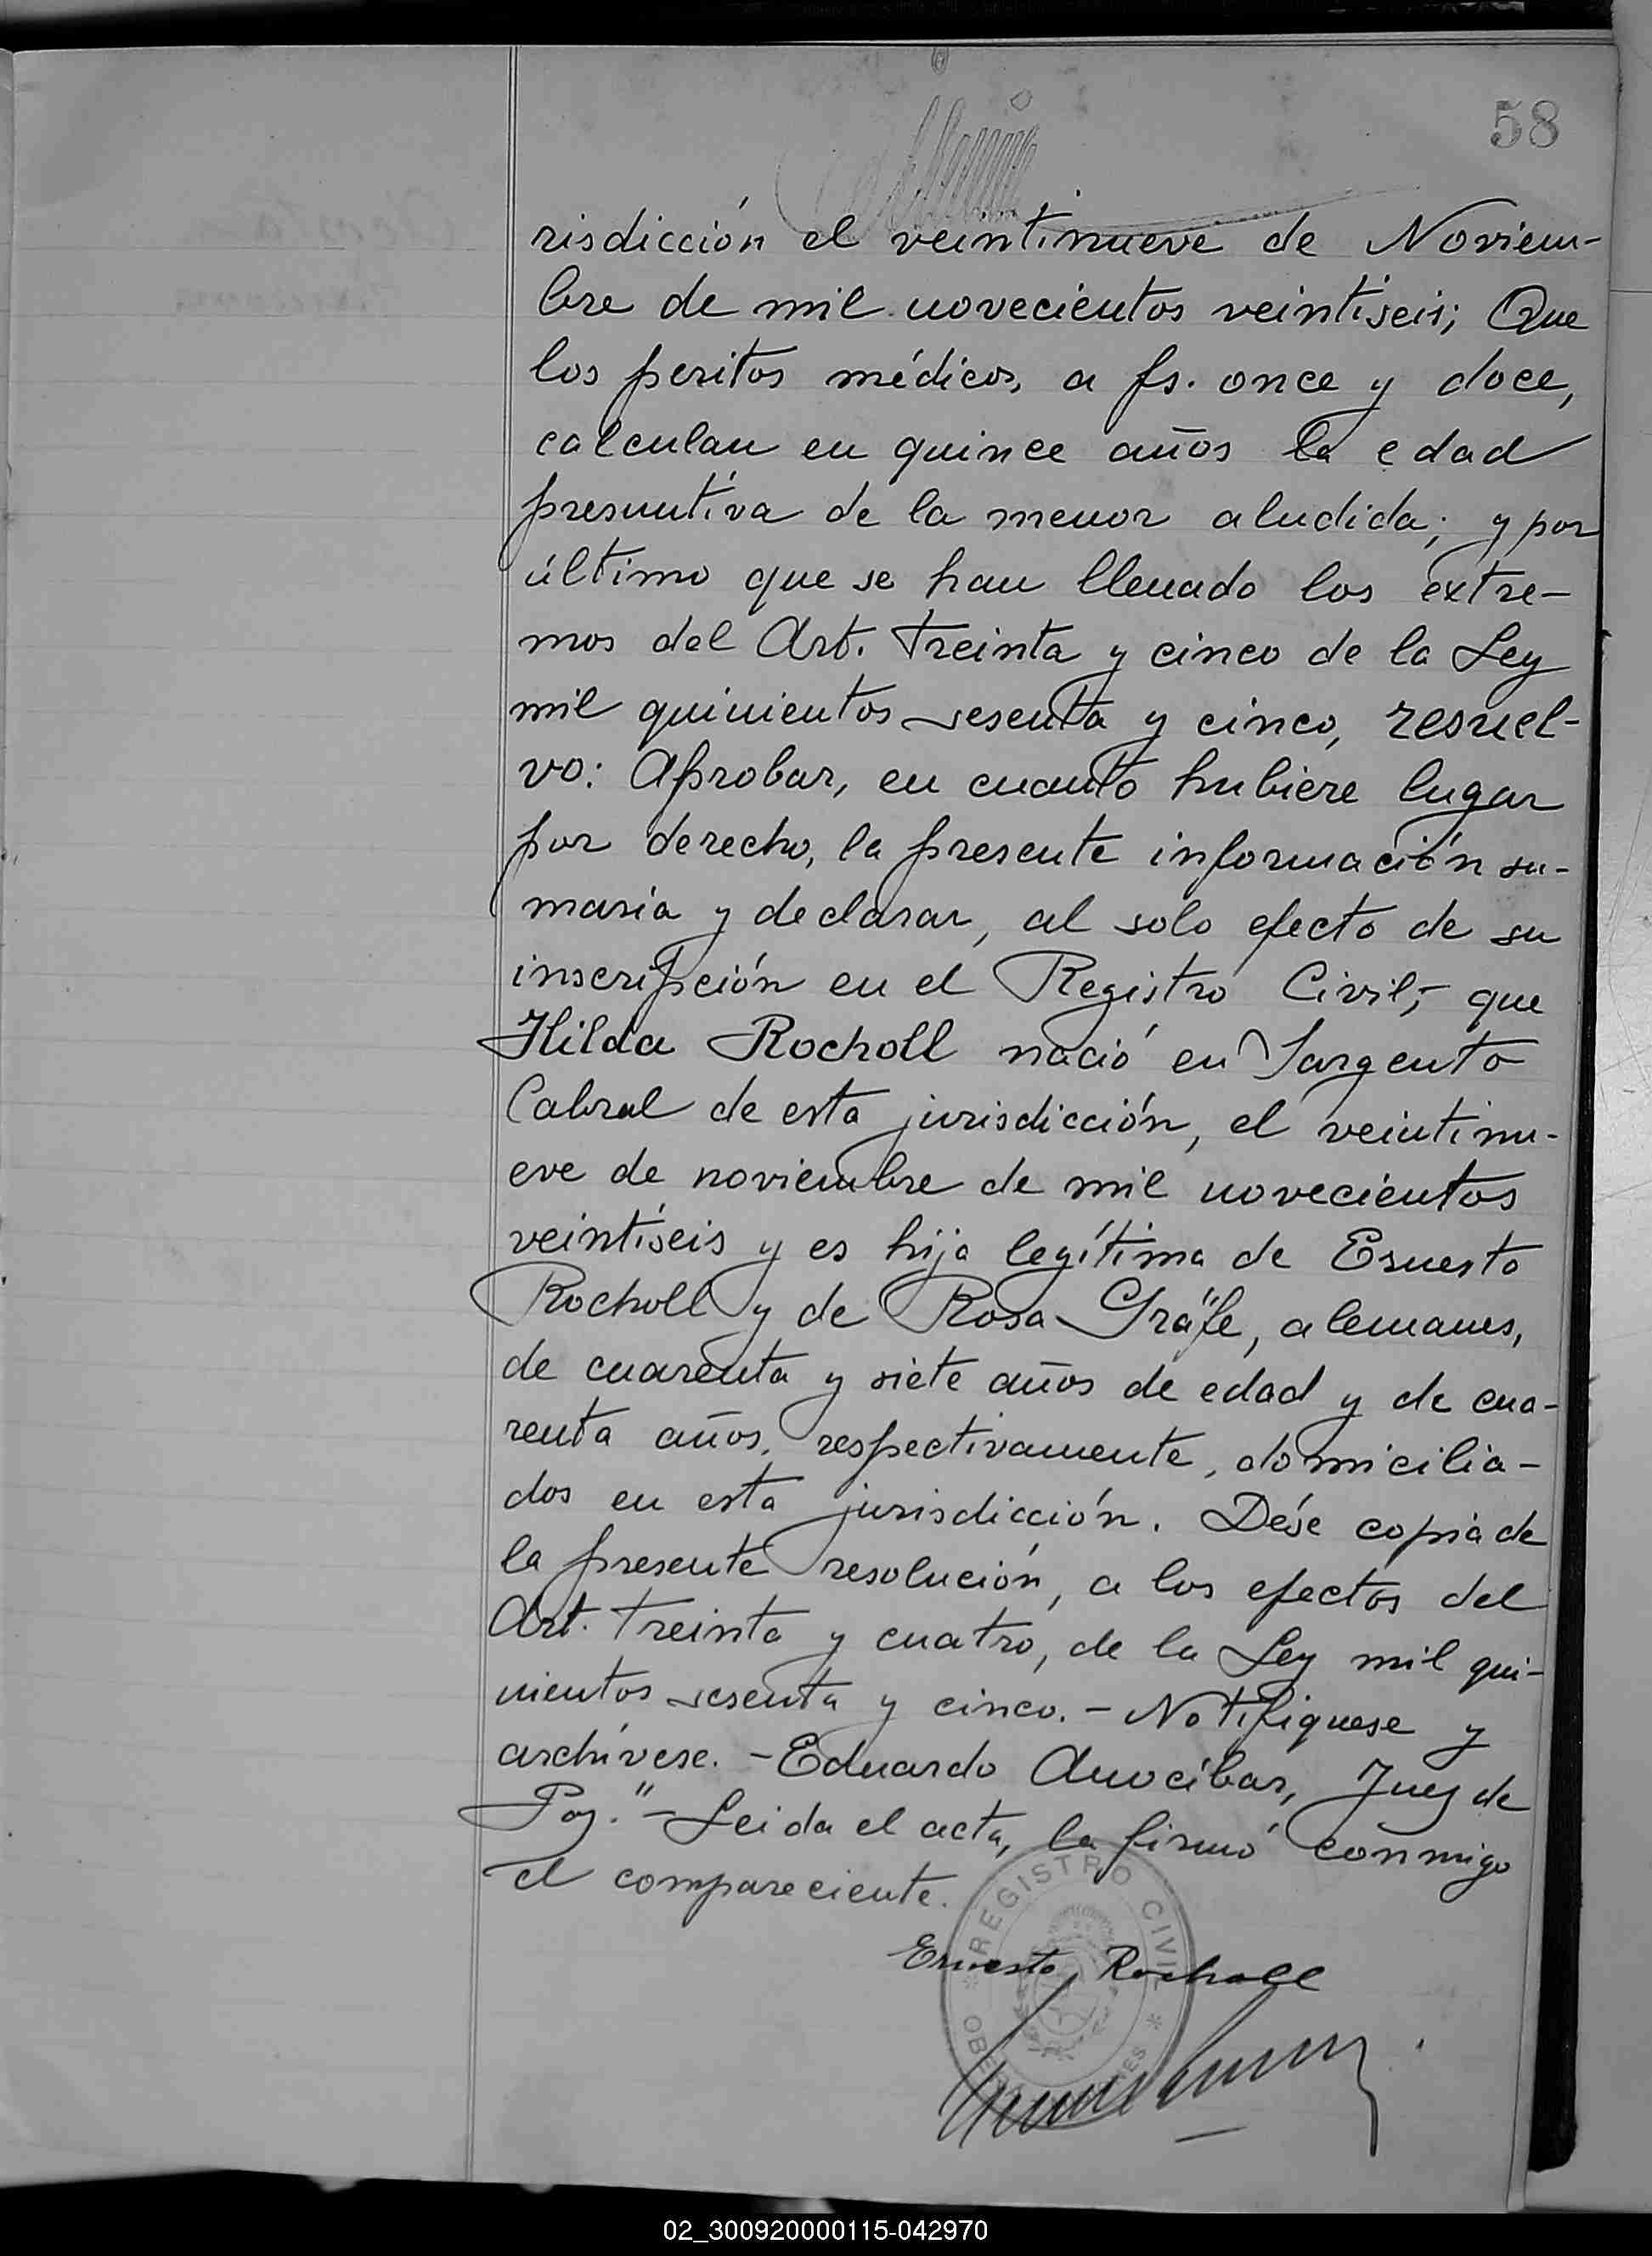 58
risdicción el veintinueve de Noviem-
bre de mil novecientos veintiseis; Que
los peritos médicos, a fs. once y doce,
calculan en quince años la edad
presuntiva de la menor aludida; y por
último que se han llenado los extre-
mos del Art. treinta y cinco de la Ley
mil quinientos sesenta y cinco, resuel-
vo: Aprobar, en cuanto hubiere lugar
por derecho, la presente información su-
maria y declarar, al solo efecto de su
inscripción en el Registro Civil,- que
Hilda Rocholl nació en Sargento
Cabral de esta jurisdicción, el veintinu-
eve de noviembre de mil novecientos
veintiseis y es hija legítima de Ernesto
Rocholl y de Rosa Gräfe, alemanes,
de cuarenta y siete años de edad y de cua-
renta años, respectivamente, domicilia-
dos en esta jurisdicción. Dése copia de
la presente resolución, a los efectos del
Art. treinta y cuatro, de la Ley mil qui-
nientos sesenta y cinco.- Notifíquese y
archívese. - Eduardo Anocíbar, Juez de
Paz."- Leida el acta, la firmó conmigo
el compareciente.
REGISTRO CIVIL
Ernesto Rocholl
02_300920000115-042970